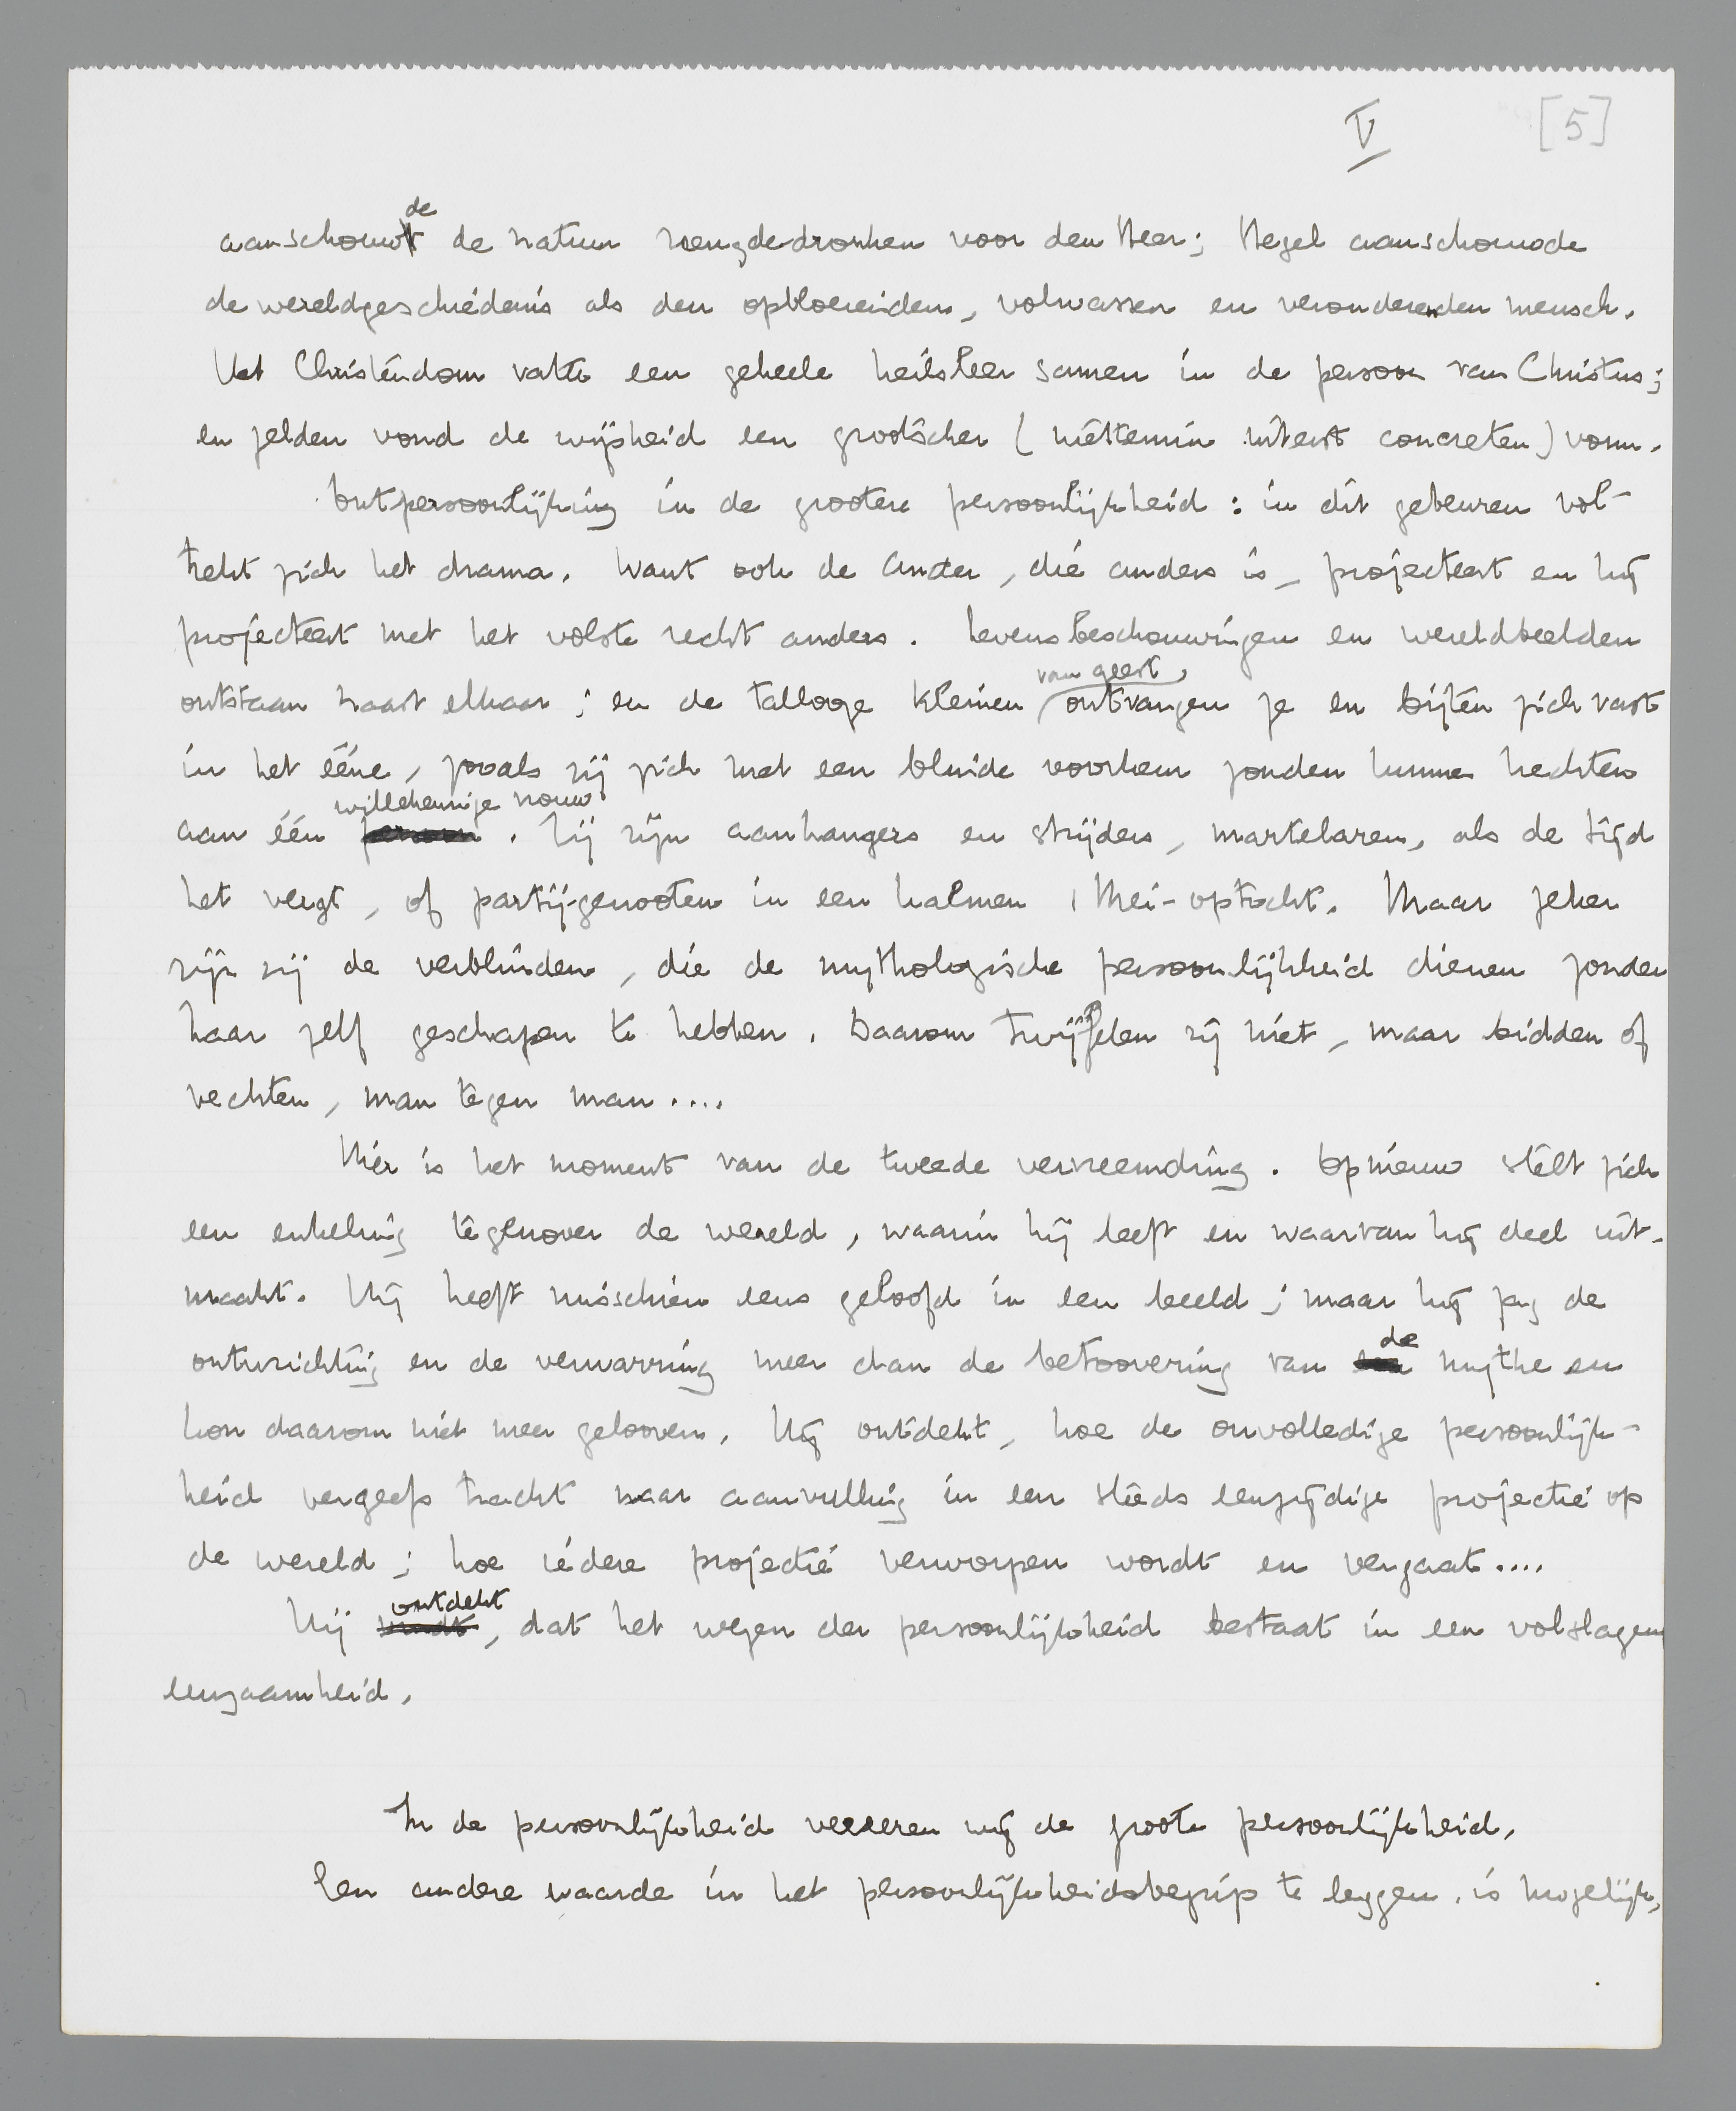 V [5]
aanschouwde de natuur vreugdedronken voor den Heer; Hegel aanschouwde
de wereldgeschiedenis als den opbloeienden, volwassen en verouderenden mensch.
Het Christendom vatte een geheele heilsleer samen in de persoon van Christus;
en zelden vond de wijsheid een grootscher (niettemin uiterst concreten) vorm.
Ontpersoonlijking in de grootere persoonlijkheid: in dit gebeuren vol-
trekt zich het drama. Want ook de ander, die anders is, projecteert en hij
projecteert met het volste recht anders. Levensbeschouwingen en wereldbeelden
van geest
ontstaan naast elkaar; en de tallooze kleinen ontvangen ze en bijten zich vast
in het ééne, zooals zij zich met een blinde voorkeur zouden kunnen hechten
willekeurige vrouw
aan één persoon. Zij zijn aanhangers en strijders, martelaren, als de tijd
het vergt, of partijgenooten in een kalmen Mei-optocht. Maar zeker
zijn zij de verblinden, die de mythologische persoonlijkheid dienen zonder
haar zelf geschapen te hebben. Daarom twijfelen zij niet, maar bidden of
vechten, man tegen man....
Hier is het moment van de tweede vervreemding. Opnieuw stelt zich
een enkeling tegenover de wereld, waarin hij leeft en waarvan hij deel uit-
maakt. Hij heeft misschien eens geloofd in een beeld; maar hij zag de
de
ontwrichting en de verwarring meer dan de betoovering van een mythe en
kon daarom niet meer gelooven. Hij ontdekt, hoe de onvolledige persoonlijk-
heid vergeefs tracht naar aanvulling in een steeds eenzijdige projectie op
de wereld; hoe iedere projectie verworpen wordt en vergaat....
ontdekt
Hij vindt, dat het wezen der persoonlijkheid bestaat in een volslagen
eenzaamheid.
In de persoonlijkheid vereeren wij de groote persoonlijkheid.
Een andere waarde in het persoonlijkheidsbegrip te leggen, is mogelijk,